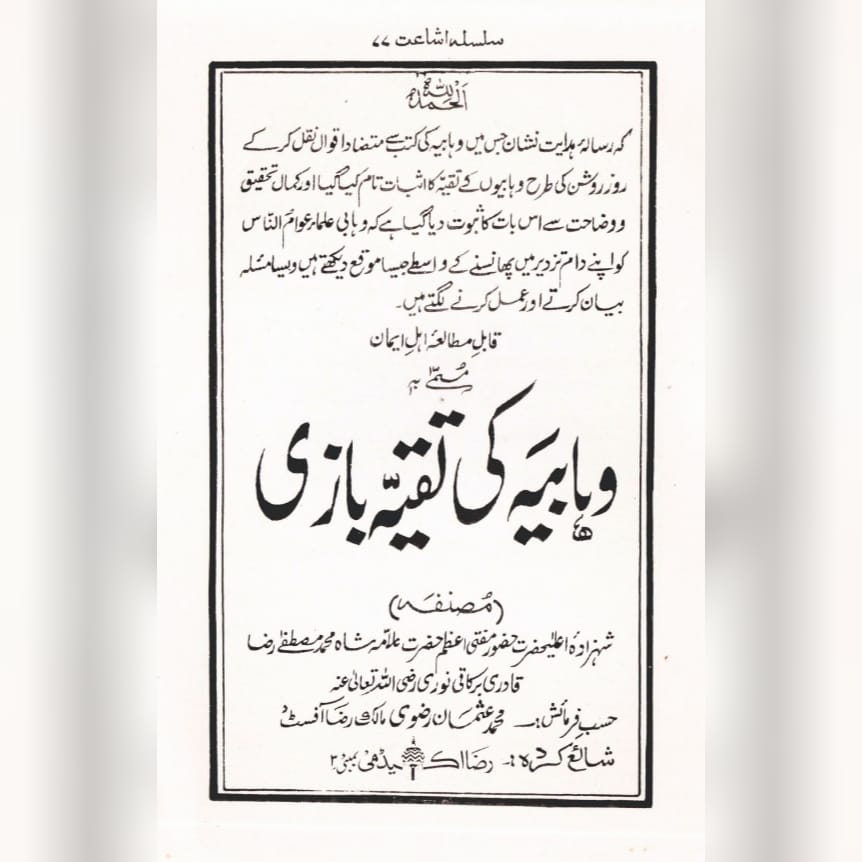 سلسلہ اشاعت ۷۷
الحمدللہ
کہ رسالۂ ہدایت نشان جس میں وہابیہ کی کتب سے متضاد اقوال نقل کر کے
روز روشن کی طرح وہابیوں کے تقیّہ کا اثبات تام کیا گیا اور کمال تحقیق
و وضاحت سے اس بات کا ثبوت دیا گیا ہے کہ وہابی علماء عوام النّاس
کو اپنے دام تزدیر میں پھانسنے کے واسطے جیسا موقع دیکھتے ہیں ویسا مسئلہ
بیان کرتے اور عمل کرنے لگتے ہیں۔
قابلِ مطالعۂ اہلِ ایمان
مُسمّٰے بہ
وہابیہ کی تقیّہ بازی
(مُصنفہ)
شہزادۂ اعلیٰحضرت حضور مفتی اعظم حضرت علامہ شاہ محمد مصطفےٰ رضا
قادری برکاتی نوری رضی اللہ تعالیٰ عنہ
حسب فرمائش :۔ محمد عثمان رضوی مالک رضا آفسٹ
شائع کردہ :۔ رضا اکیڈمی بمبئی ۳